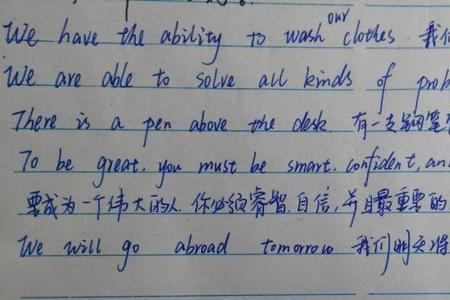 We have the ability to wash our clothes. 我们
We are able to solve all kinds of prob
There is a pen above the desk 有一支钢笔
To be great, you must be smart, confident, an
要成为一个伟大的人，你必须睿智，自信，并且最重要的
We will go abroad tomorrow 我们明天将